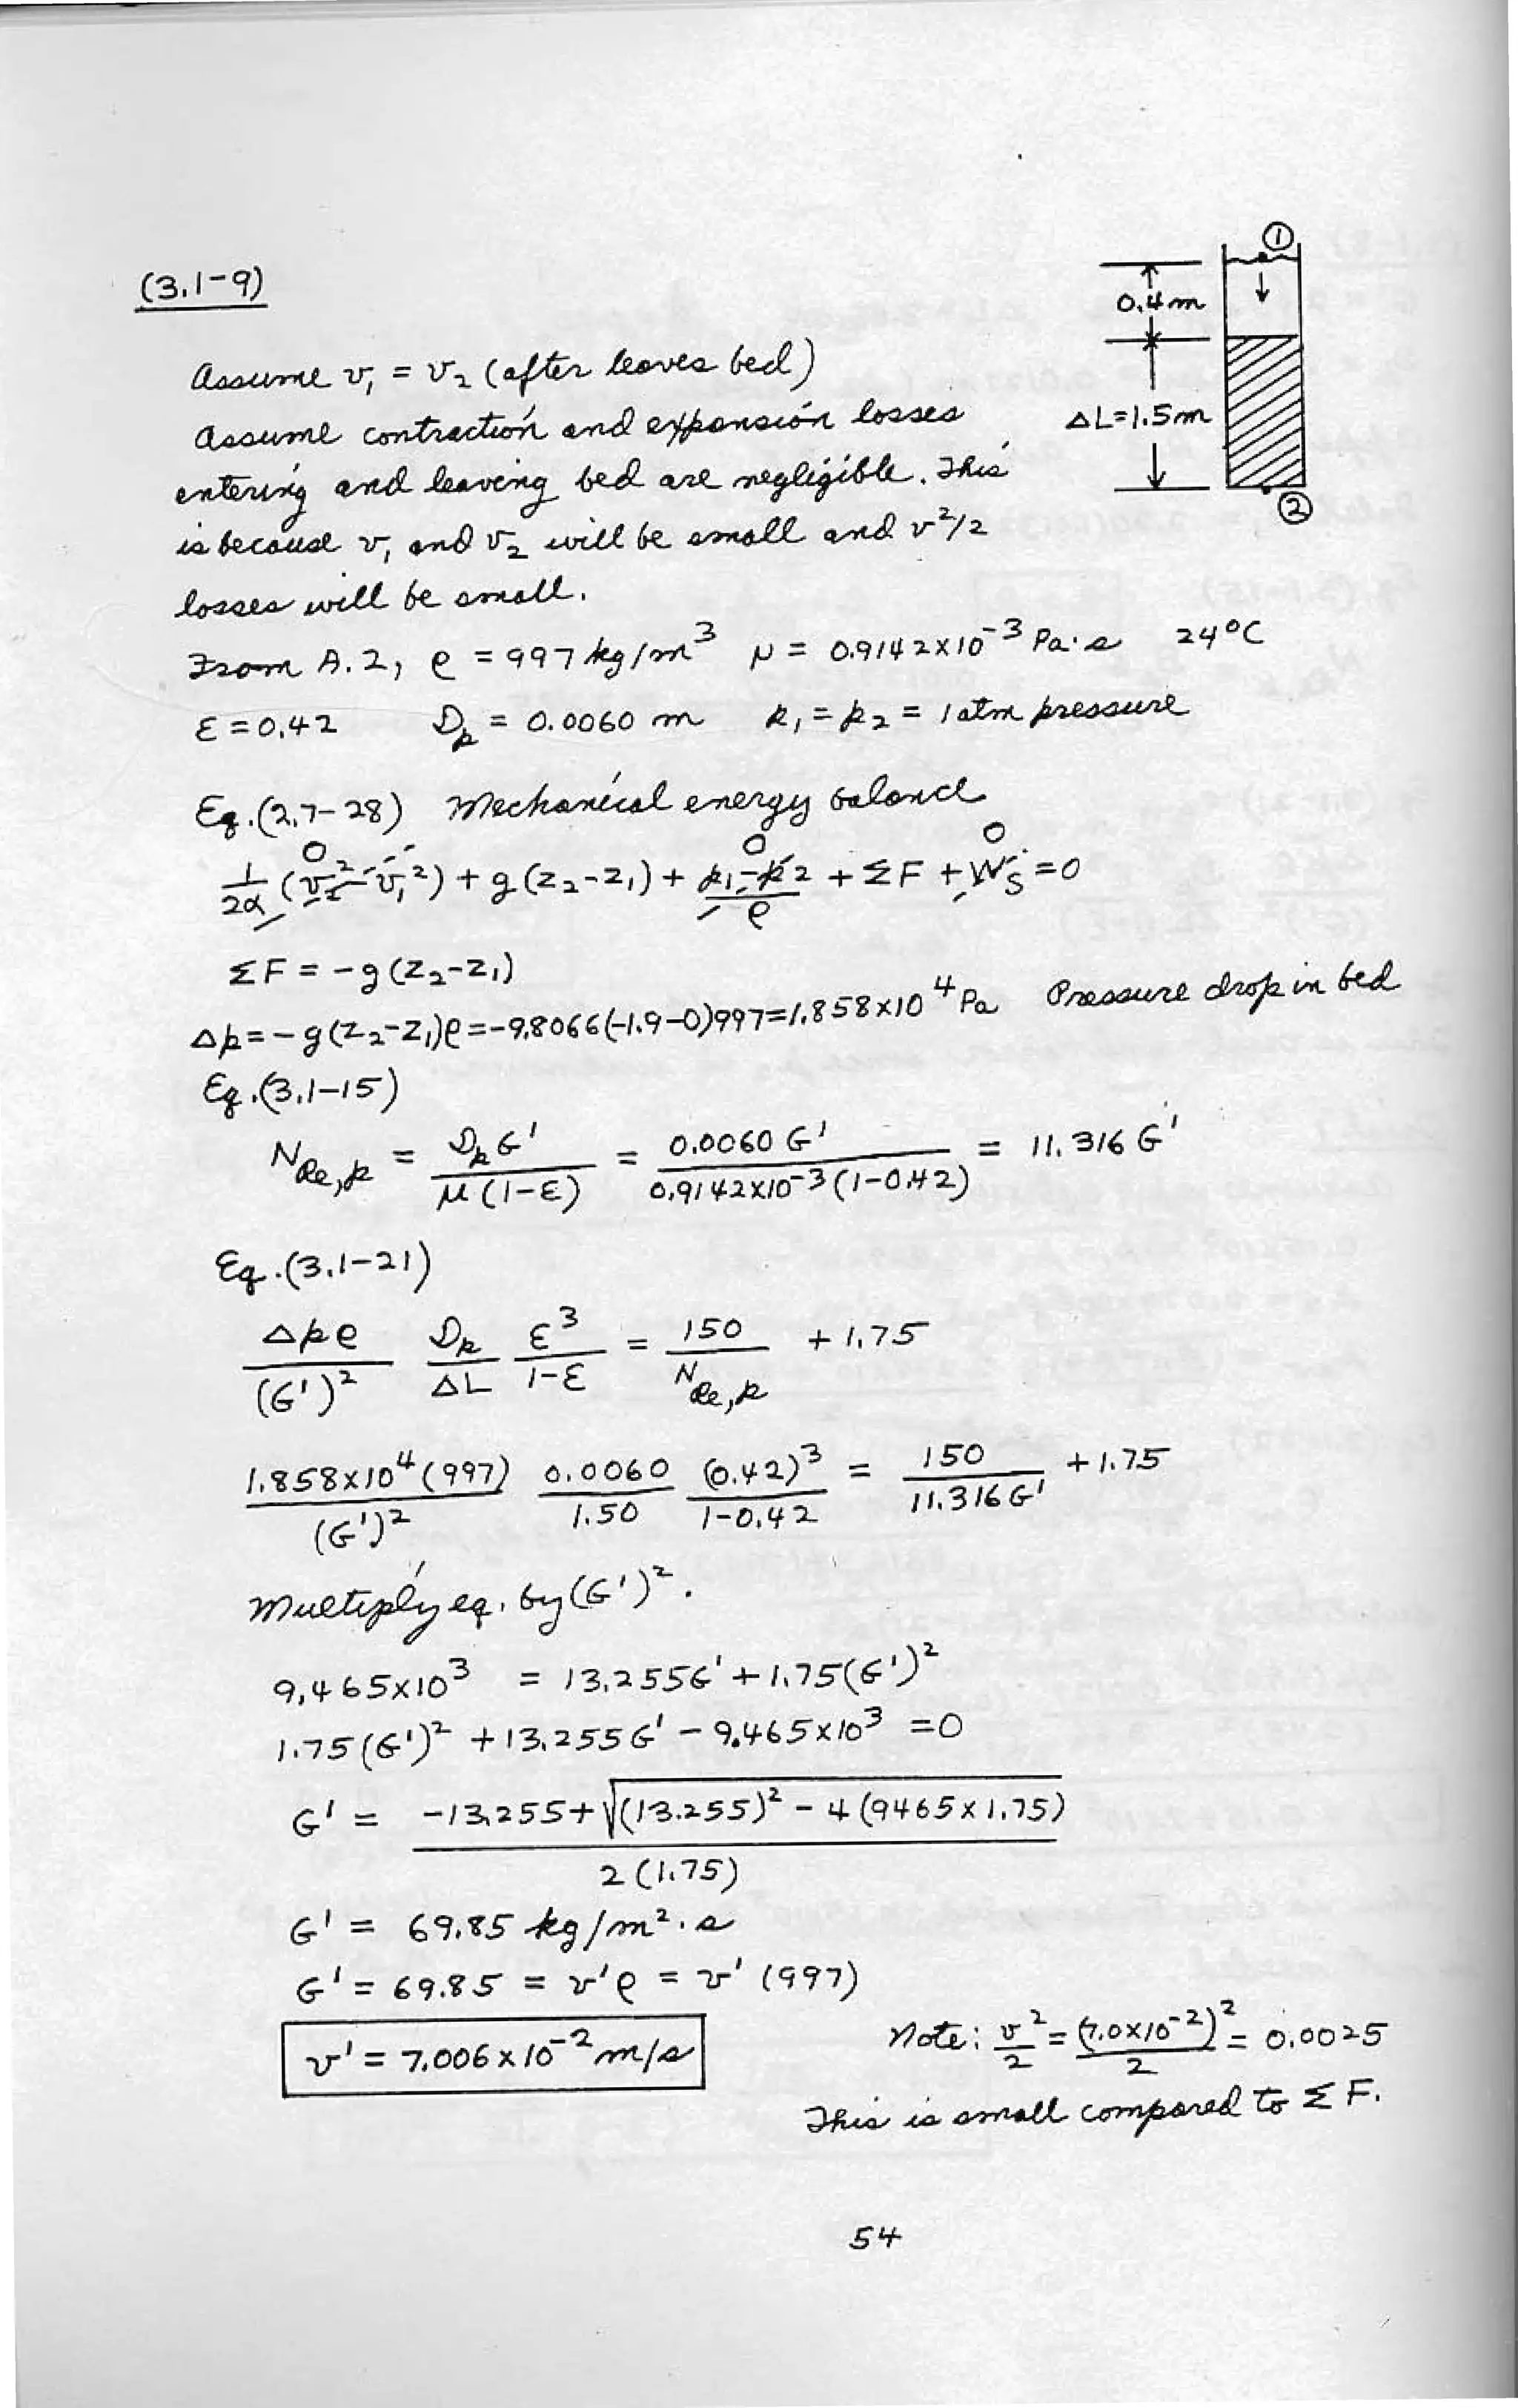 (3.1-9)
①
0.4m
ΔL=1.5m
②
Assume v₁ = v₂ (after leaves bed)
Assume contraction and expansion losses
entering and leaving bed are negligible. This
is because v₁ and v₂ will be small and v²/2
losses will be small.
From A.2, ρ = 997 kg/m³ μ = 0.9142x10⁻³ Pa·s 24°C
ε = 0.42 Dp = 0.0060 m p₁ = p₂ = 1 atm pressure
Eq.(2.7-28) Mechanical energy balance
0 0 0
1/2α (v₂² - v₁²) + g(z₂-z₁) + (p₁-p₂)/ρ + ΣF + Ws = 0
ΣF = -g(z₂-z₁)
Δp = -g(z₂-z₁)ρ = -9.8066(-1.9-0)997 = 1.858x10⁴ Pa Pressure drop in bed
Eq.(3.1-15)
N_Re,p = DpG'/μ(1-ε) = 0.0060 G'/0.9142x10⁻³(1-0.42) = 11.316 G'
Eq.(3.1-21)
Δpρ/(G')² Dp/ΔL ε³/1-ε = 150/N_Re,p + 1.75
1.858x10⁴(997)/(G')² 0.0060/1.50 (0.42)³/1-0.42 = 150/11.316G' + 1.75
Multiply eq. by (G')².
9.465x10³ = 13.255G' + 1.75(G')²
1.75(G')² + 13.255G' - 9.465x10³ = 0
G' = -13.255+√(13.255)² - 4(9465x1.75)/2(1.75)
G' = 69.85 kg/m²·s
G' = 69.85 = v'ρ = v'(997)
v' = 7.006x10⁻² m/s
Note: v²/2 = (7.0x10⁻²)²/2 = 0.0025
This is small compared to ΣF.
54